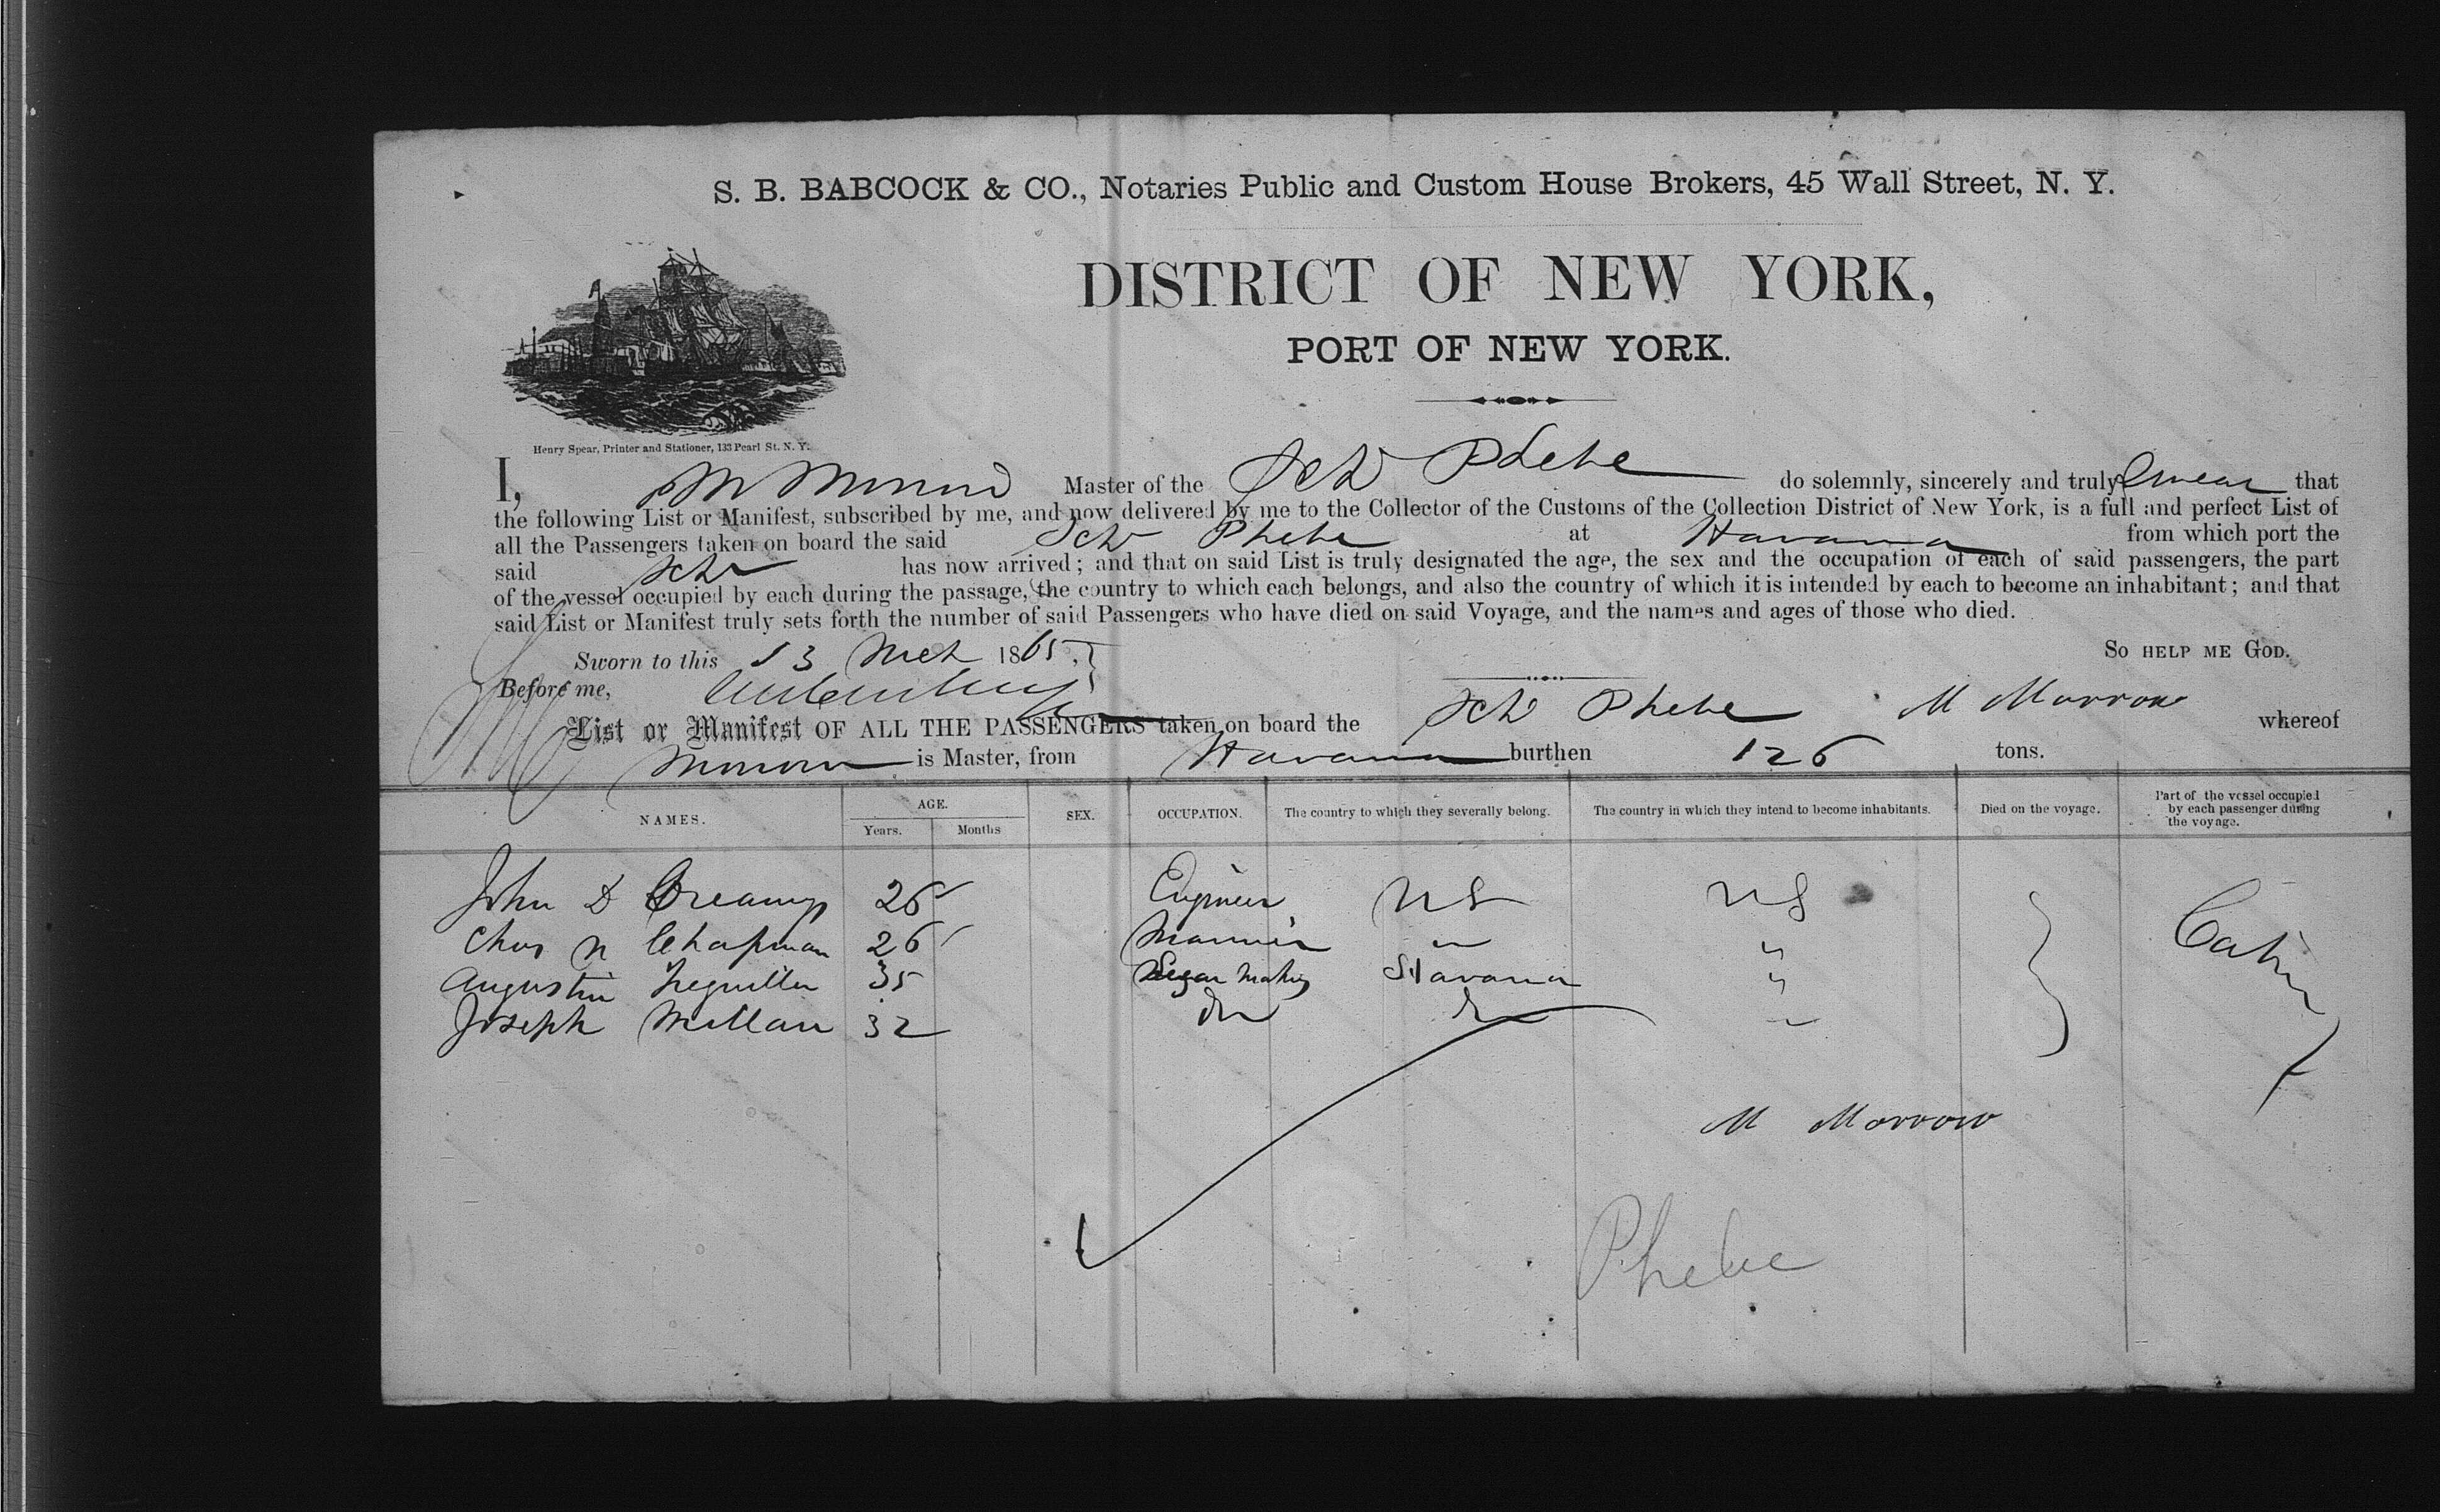 S. B. BABCOCK & CO., Notaries Public and Custom House Brokers, 45 Wall Street, N. Y.
DISTRICT OF NEW YORK,
PORT OF NEW YORK.
Henry Spear, Printer and Stationer, 133 Pearl St. N. Y.
I, M Morrow Master of the Schr Phebe do solemnly, sincerely and truly Swear that
the following List or Manifest, subscribed by me, and now delivered by me to the Collector of the Customs of the Collection District of New York, is a full and perfect List of
all the Passengers taken on board the said Schr Phebe at Havana from which port the
said Schr has now arrived; and that on said List is truly designated the age, the sex and the occupation of each of said passengers, the part
of the vessel occupied by each during the passage, the country to which each belongs, and also the country of which it is intended by each to become an inhabitant; and that
said List or Manifest truly sets forth the number of said Passengers who have died on said Voyage, and the names and ages of those who died.
Sworn to this 13 Mch 1865, SO HELP ME GOD.
Before me,
M Morrow
List or Manifest OF ALL THE PASSENGERS taken on board the Schr Phebe whereof
Morrow is Master, from Havana burthen 126 tons.
NAMES. AGE. Years. Months SEX. OCCUPATION. The country to which they severally belong. The country in which they intend to become inhabitants. Died on the voyage. Part of the vessel occupied by each passenger during the voyage.
John D 26 Engineer US US Cabin
Chas N Chapman 26 Mariner " "
Augustin 35 Segar Making Havana "
Joseph Millan 32 Do Do "
M Morrow
Phebe